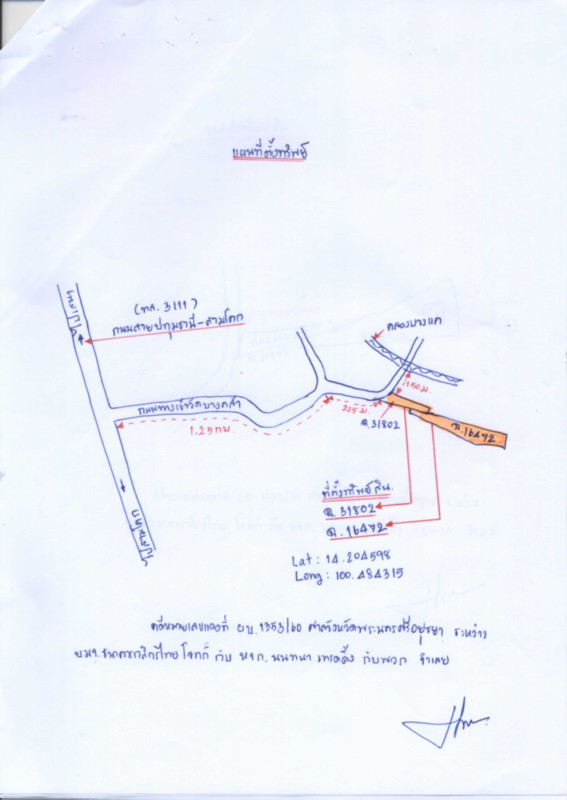 แผนที่ตั้งทรัพย์
ไปเสนา
(ทล. 3111)
ถนนสายปทุมธานี-สามโคก
คลองบางแค
150 ม.
ถนนทางเข้าวัดบางคล้า
1.25 กม.
225 ม.
ฉ.31802
ฉ.16472
ที่ตั้งทรัพย์สิน
ฉ. 31802
ฉ. 16472
ไปสามโคก
Lat : 14.204598
Long : 100.484315
คดีหมายเลขแดงที่ ผบ.1353/60 ศาลจังหวัดพระนครศรีอยุธยา ระหว่าง
บมจ.ธนาคารกสิกรไทย โจทก์ กับ หจก. นนทนา เทรดดิ้ง กับพวก จำเลย